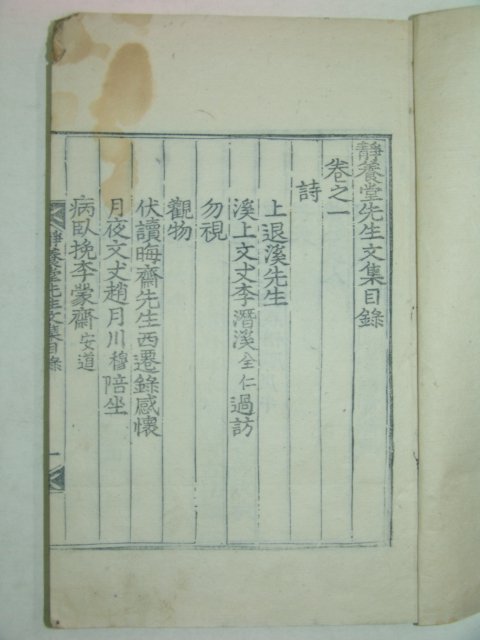 靜養堂先生文集目錄
卷之一
詩
上退溪先生
溪上文丈李潛溪全仁過訪
勿視
觀物
伏讀晦齋先生西遷錄感懷
月夜文丈趙月川穆陪坐
病臥挽李蒙齋安道
靜養堂先生文集目錄 一